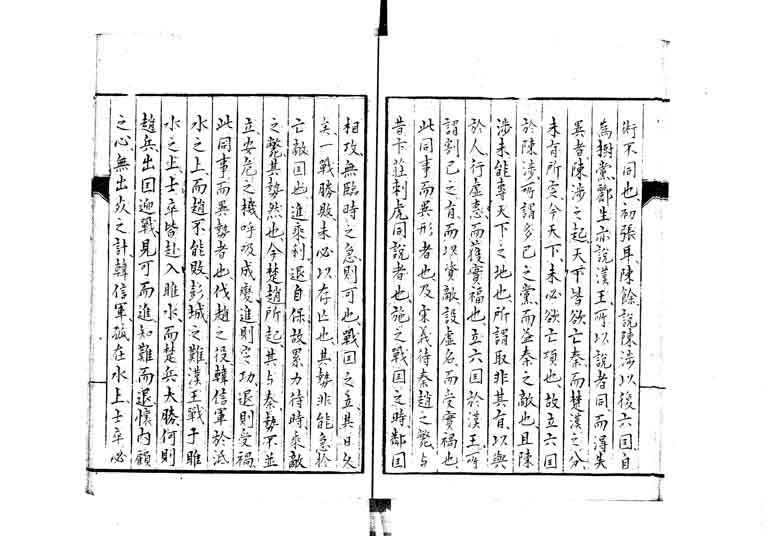 術不同也、初張耳陳餘說陳涉以後六囯自
爲樹黨酈生亦說漢王、所以說者同、而得失
異者陳涉之起天下皆欲亡秦而楚漢之分
未有所㝎今天下、未必欲亡項也、故立六囯
於陳涉、所謂多己之黨而益秦之敵也且陳
涉未能專天下之地也、所謂取非其有、以與
於人行虛惠而獲實福也、立六囯於漢王、所
謂割己之有、而以資敵設虛名而受實禍也、
此同事而異形者也、及宋義待秦趙之斃与
昔卞莊刺虎同說者也、施之戰囯之時、鄰囯
相攻無臨時之急則可也、戰囯之立、其日久
矣一戰勝敗未必以存亡也、其勢非能急於
亡敵囯也、進乘利退自保故累力待時、乘敵
之斃其勢然也、今楚趙所起其与秦勢不並
立安危之機呼吸成變進則㝎功、退則受禍
此同事而異勢者也、伐趙之役韓信軍於泜
水之上、而趙不能敗、彭城之難漢王戰于睢
水之上、士卒皆赴入睢水而楚兵大勝、何則
趙兵出囯迎戰見可而進知難而退懷內顧
之心、無出死之計、韓信軍孤在水上、士卒必